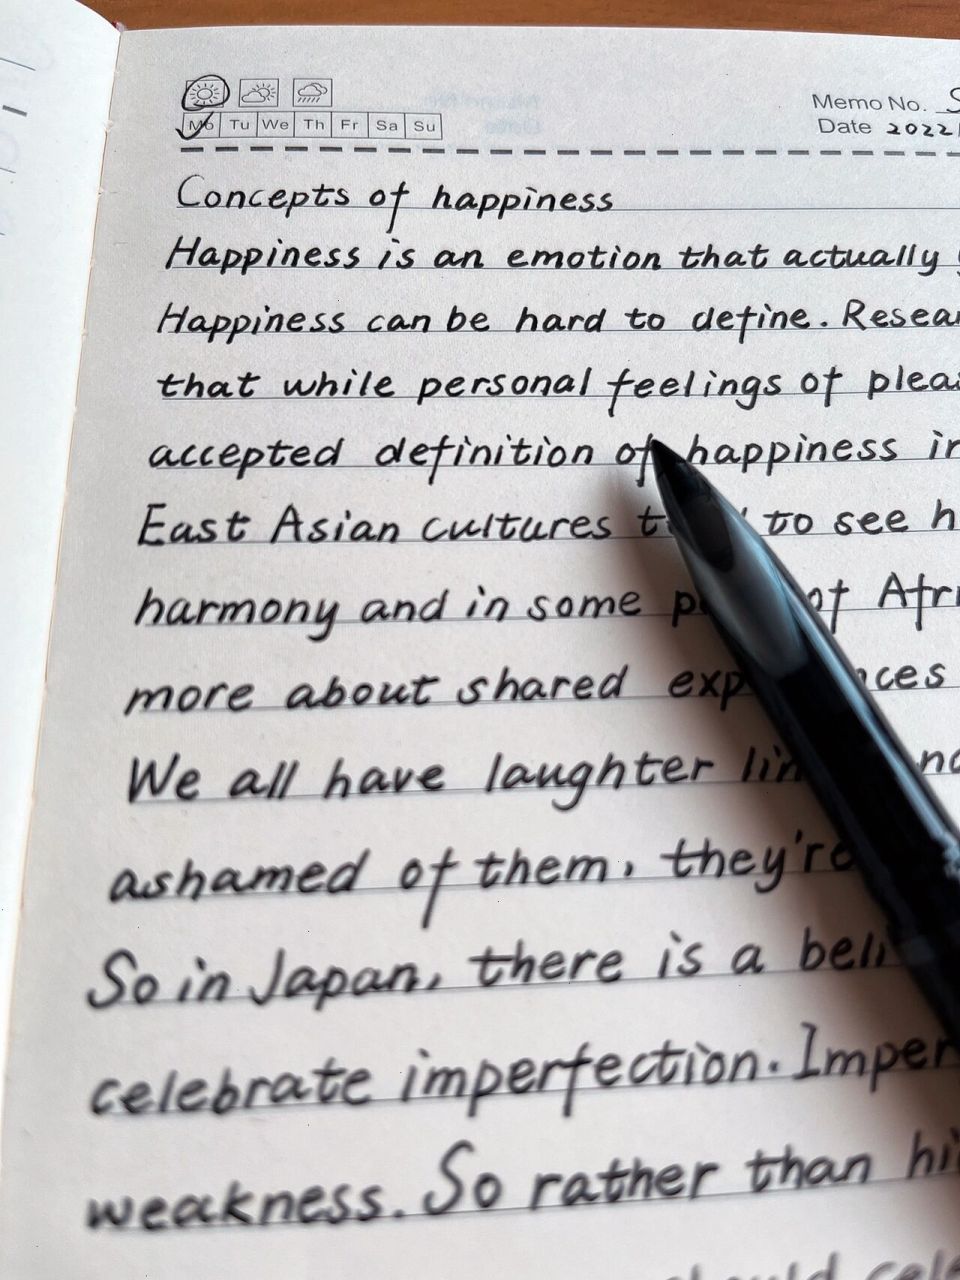 Mo Tu We Th Fr Sa Su
Memo No.
Date 2022/
Concepts of happiness
Happiness is an emotion that actually
Happiness can be hard to define. Resear
that while personal feelings of pleas
accepted definition of happiness in
East Asian cultures to see h
harmony and in some of Afri
more about shared exp nces
We all have laughter lin
ashamed of them, they're
So in Japan, there is a beli
celebrate imperfection. Imper
weakness. So rather than hi
should cele